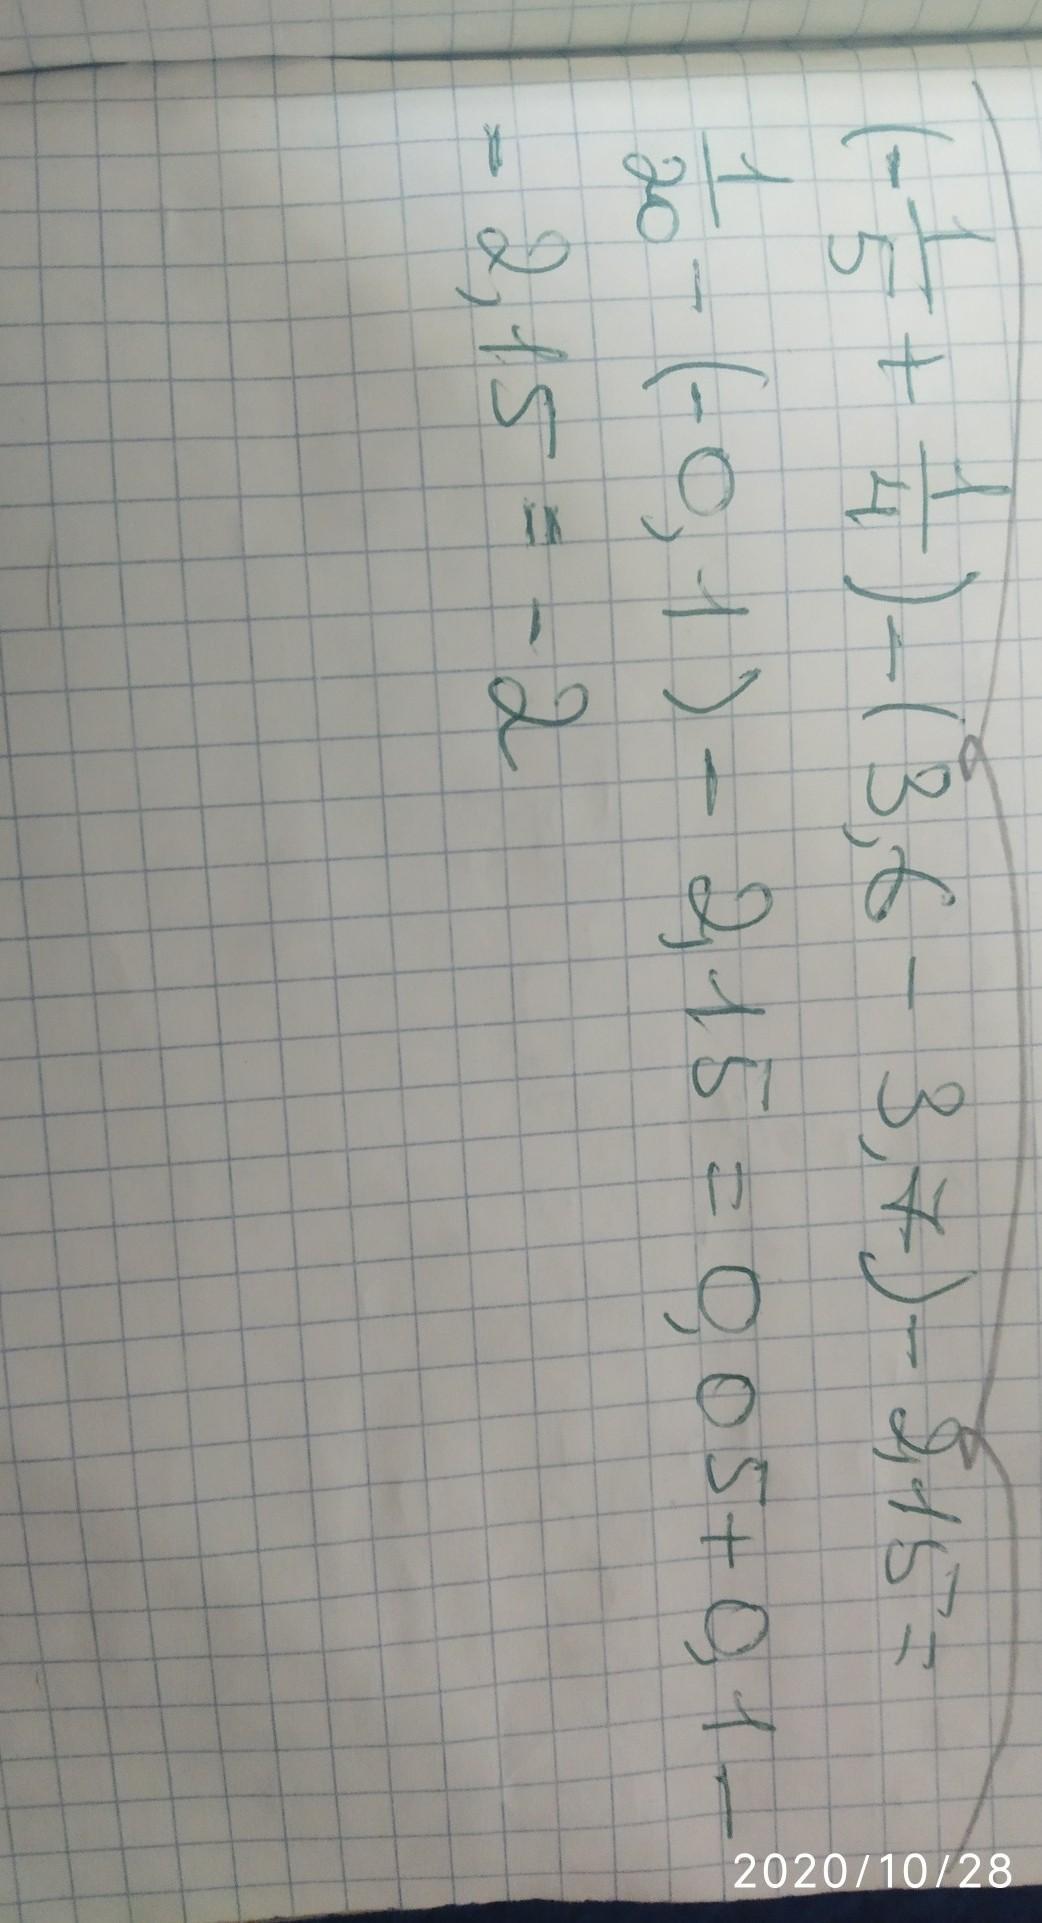 (-1/5 + 1/4) - (3,6 - 3,7) - 2,15 =
1/20 - (-0,1) - 2,15 = 0,05 + 0,1 -
- 2,15 = -2
2020/10/28